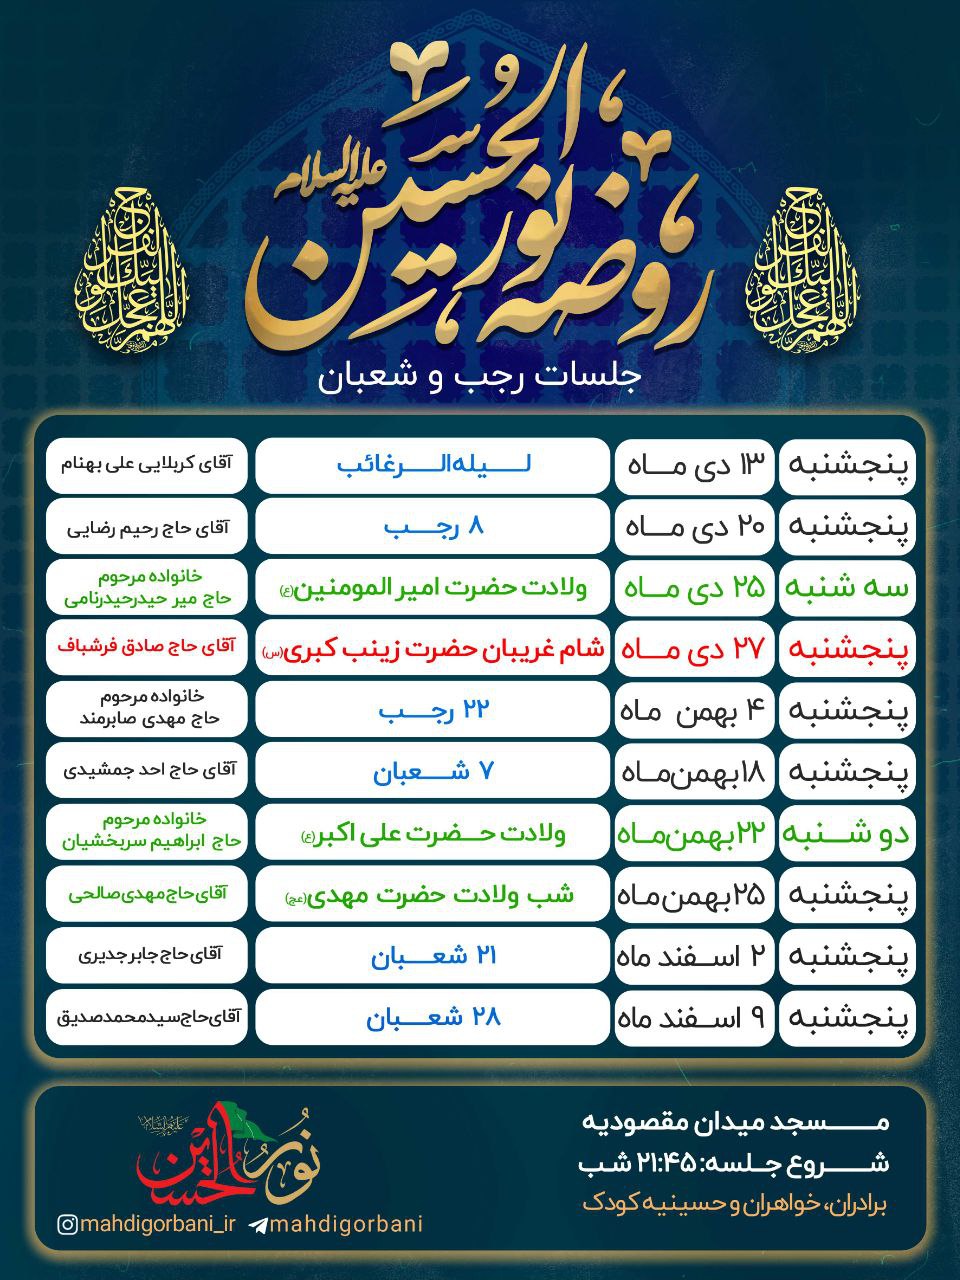 روضه نورالحسین علیه السلام
اللهم عجل لولیک الفرج
اللهم عجل لولیک الفرج
جلسات رجب و شعبان
پنجشنبه ۱۳ دی مـاه لـیله‌الـرغائب آقای کربلایی علی بهنام
پنجشنبه ۲۰ دی مـاه ۸ رجـب آقای حاج رحیم رضایی
سه شنبه ۲۵ دی مـاه ولادت حضرت امیر المومنین(ع) خانواده مرحوم حاج میر حیدرحیدرنامی
پنجشنبه ۲۷ دی مـاه شام غریبان حضرت زینب کبری(س) آقای حاج صادق فرشباف
پنجشنبه ۴ بهمن ماه ۲۲ رجـب خانواده مرحوم حاج مهدی صابرمند
پنجشنبه ۱۸بهمن‌مـاه ۷ شـعبان آقای حاج احد جمشیدی
دو شـنبه ۲۲بهمن‌مـاه ولادت حـضرت علی اکبر(ع) خانواده مرحوم حاج ابراهیم سربخشیان
پنجشنبه ۲۵بهمن‌ماه شب ولادت حضرت مهدی(عج) آقای حاج مهدی صالحی
پنجشنبه ۲ اسـفند ماه ۲۱ شعـبان آقای حاج جابر جدیری
پنجشنبه ۹ اسـفند ماه ۲۸ شعـبان آقای حاج سید محمد صدیق
مـسجد میدان مقصودیه
شـروع جـلسه: ۲۱:۴۵ شب
برادران، خواهران و حسینیه کودک
نور الحسین علیه‌السلام
mahdigorbani_ir mahdigorbani